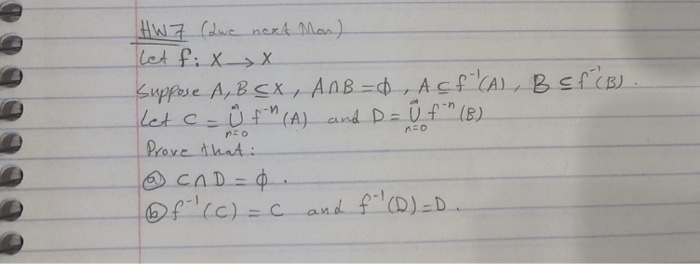 HW7 (due next Mon)
Let f: X → X
Suppose A, B ⊆ X, A∩B = ϕ, A ⊆ f⁻¹(A), B ⊆ f⁻¹(B).
Let C = ∞∪n=0 f⁻ⁿ(A) and D = ∞∪n=0 f⁻ⁿ(B)
Prove that:
ⓐ C∩D = ϕ.
ⓑ f⁻¹(C) = C and f⁻¹(D) = D.